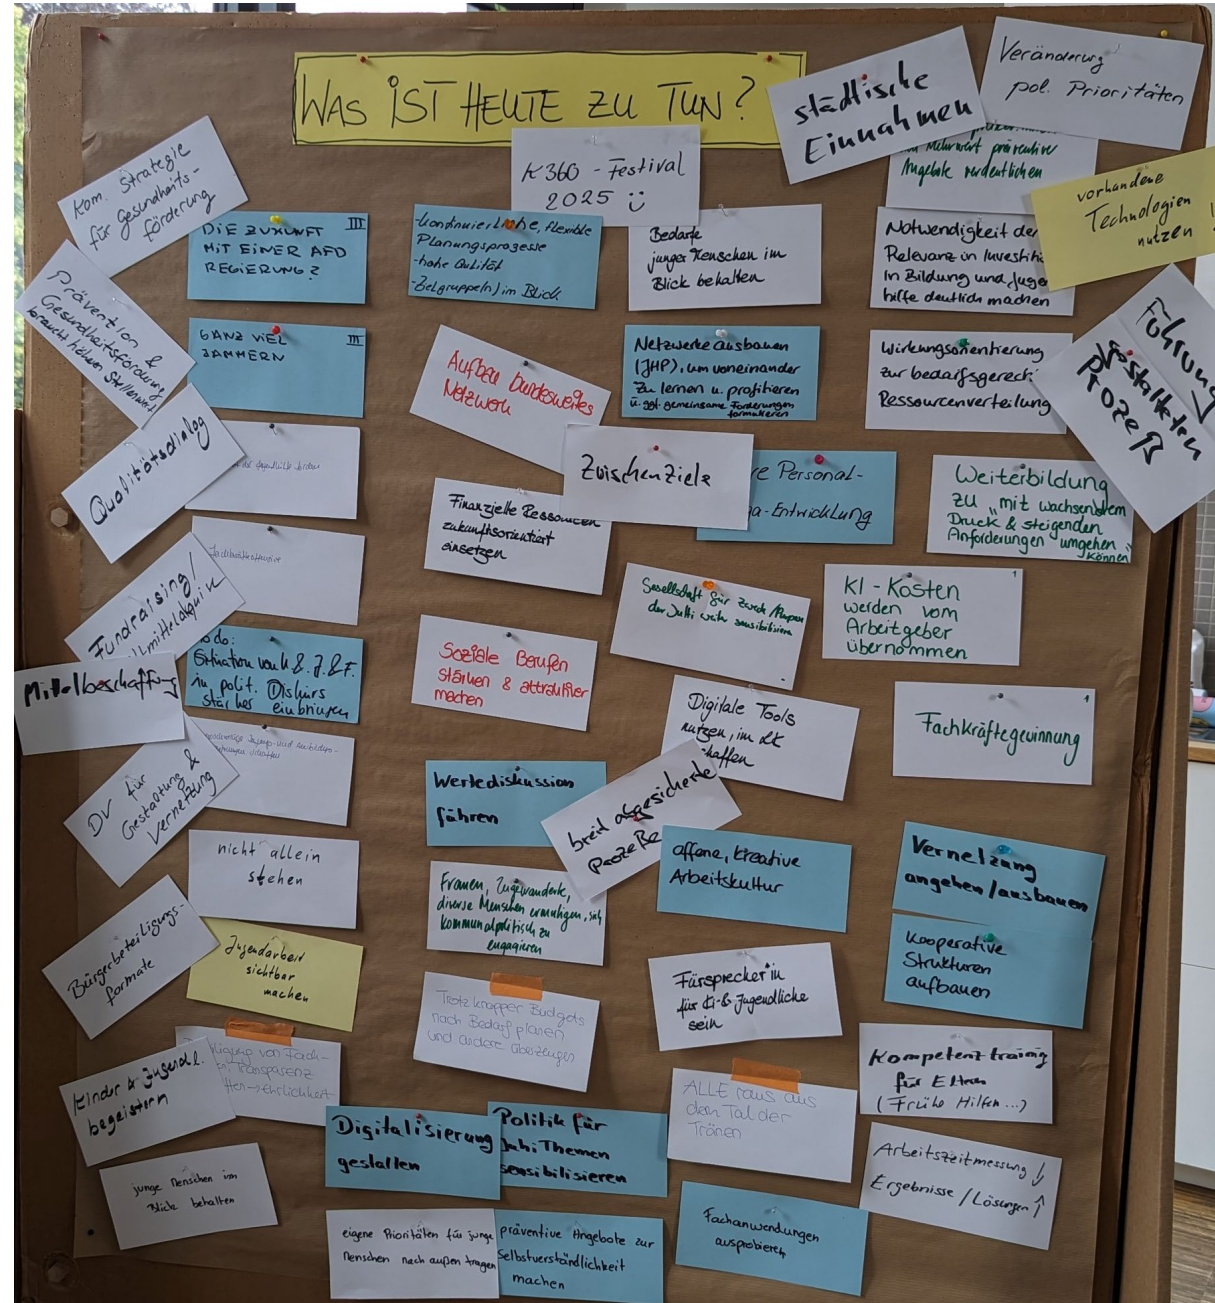 WAS IST HEUTE ZU TUN?
städtische
Einnahmen
Veränderung
pol. Prioritäten
K360 - Festival
2025
Mehrwert präventive
Angebote verdeutlichen
vorhandene
Technologien
nutzen!
Kom. Strategie
für Gesundheits-
förderung
DIE ZUKUNFT III
MIT EINER AFD
REGIERUNG?
-kontinuierliche, flexible
Planungsprozesse
-hohe Qulität
-Zielgruppe(n) im Blick
Bedarfe
junger Menschen im
Blick behalten
Notwendigkeit der
Relevanz in Investiti
In Bildung und Juge
hilfe deutlich machen
Prävention &
Gesundheitsförderung
braucht höheren Stellenwert
GANZ VIEL III
JAMMERN
Aufbau bundesweites
Netzwerk
Netzwerke ausbauen
(JHP), um voneinander
zu lernen u. profitieren
u. ggf. gemeinsame Forderungen
formulieren
Wirkungsorientierung
zur bedarfsgerecht
Ressourcenverteilung
Führung
gestalteten
Prozeß
Qualitätsdialog
der Jugendhilfe
Zwischenziele
re Personal-
-Entwicklung
Weiterbildung
zu "mit wachsendem
Druck & steigenden
Anforderungen umgehen"
können
Finanzielle Ressourcen
zukunftsorientiert
einsetzen
Fachkräfteoffensive
Fundraising/
llmittelakquise
Gesellschaft für
der JuHi sensibilisieren
KI - Kosten 1
werden vom
Arbeitgeber
übernommen
do:
Situation von K. & J. & F.
in polit. Diskurs
stärker einbringen
Mittelbeschaffung
Soziale Berufen
stärken & attraktiver
machen
Digitale Tools
nutzen, im
schaffen
Fachkräftegewinnung 1
und Ausbildungs-
schaffen
DV für
Gestaltung &
Vernetzung
Wertediskussion
führen
breit abgesicherte
Prozeße
nicht allein
stehen
offene, kreative
Arbeitskultur
Vernetzung
angehen/ausbauen
Frauen, Zugewanderte,
diverse Menschen ermutigen, sich
kommunalpolitisch zu
engagieren
Bürgerbeteiligungs-
formate
Jugendarbeit
sichtbar
machen
Fürsprecher*in
für Ki-& Jugendliche
sein
Kooperative
Strukturen
aufbauen
Trotz knapper Budgets
nach Bedarf planen
und andere überzeugen
igung von Fach-
Transparenz
→ Ehrlichkeit
Kinder & Jugendl.
begeistern
ALLE raus aus
dem Tal der
Tränen
Kompetenztraining
für Eltern
(Frühe Hilfen...)
Digitalisierung
gestalten
Politik für
Jahi Themen
sensibilisieren
Arbeitszeitmessung ↓
Ergebnisse / Lösungen ↑
junge Menschen im
Blick behalten
eigene Prioritäten für junge
Menschen nach außen tragen
präventive Angebote zur
Selbstverständlichkeit
machen
Fachanwendungen
ausprobieren